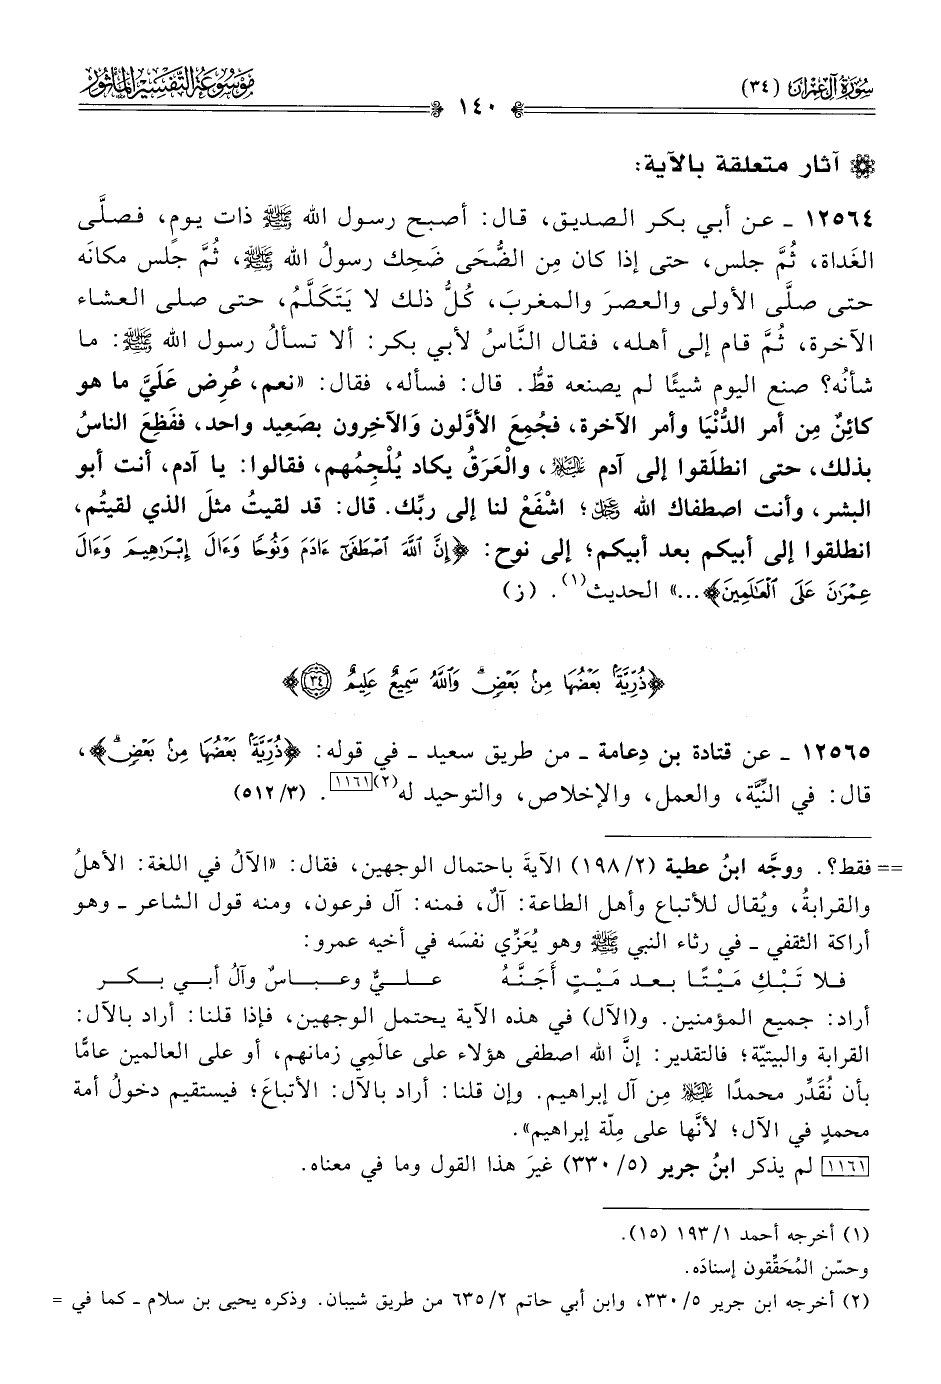 سُورَةُ آلِ عِمْرَانَ (٣٤)
١٤٠
مَوْسُوعَةُ التَّفْسِيْرِ المَأْثُورِ
آثار متعلقة بالآية:
١٢٥٦٤ ـ عن أبي بكر الصديق، قال: أصبح رسول الله ﷺ ذات يومٍ، فصلَّى
الغَداة، ثُمَّ جلس، حتى إذا كان مِن الضُّحَى ضَحِك رسولُ الله ﷺ، ثُمَّ جلس مكانَه
حتى صلَّى الأولى والعصرَ والمغربَ، كُلُّ ذلك لا يَتَكلَّمُ، حتى صلى العشاء
الآخرة، ثُمَّ قام إلى أهله، فقال النَّاسُ لأبي بكر: ألا تسألُ رسول الله ﷺ: ما
شأنُه؟ صنع اليوم شيئًا لم يصنعه قطُّ. قال: فسأله، فقال: «نعم، عُرِض عَلَيَّ ما هو
كائِنٌ مِن أمر الدُّنْيَا وأمر الآخرة، فجُمِعَ الأوَّلون وَالآخِرون بصَعِيد واحد، ففَظِعَ الناسُ
بذلك، حتى انطلَقوا إلى آدم ﵇، والْعَرَقُ يكاد يُلْجِمُهم، فقالوا: يا آدم، أنت أبو
البشر، وأنت اصطفاك الله ﷿؛ اشْفَعْ لنا إلى ربِّك. قال: قد لقيتُ مثلَ الذي لقيتُم،
انطلقوا إلى أبيكم بعد أبيكم؛ إلى نوح: ﴿إِنَّ ٱللَّهَ ٱصْطَفَىٰٓ ءَادَمَ وَنُوحًا وَءَالَ إِبْرَٰهِيمَ وَءَالَ
عِمْرَٰنَ عَلَى ٱلْعَٰلَمِينَ﴾...» الحديث(١). (ز)
﴿ذُرِّيَّةًۢ بَعْضُهَا مِنۢ بَعْضٍۗ وَٱللَّهُ سَمِيعٌ عَلِيمٌ ٣٤﴾
١٢٥٦٥ ـ عن قتادة بن دِعامة ـ من طريق سعيد ـ في قوله: ﴿ذُرِّيَّةًۢ بَعْضُهَا مِنۢ بَعْضٍۗ﴾،
قال: في النِّيَّة، والعمل، والإخلاص، والتوحيد له(٢)[١١٦١]. (٥١٢/٣)
== فقط؟. ووجَّه ابنُ عطية (١٩٨/٢) الآيةَ باحتمال الوجهين، فقال: «الآلُ في اللغة: الأهلُ
والقرابةُ، ويُقال للأتباع وأهل الطاعة: آلٌ، فمنه: آل فرعون، ومنه قول الشاعر ـ وهو
أراكة الثقفي ـ في رثاء النبي ﷺ وهو يُعَزِّي نفسَه في أخيه عمرو:
فلا تَبْكِ مَيْتًا بعد مَيْتٍ أَجَنَّهُ علـيٌّ وعبـاسٌ وآلُ أبـي بـكـر
أراد: جميع المؤمنين. و(الآل) في هذه الآية يحتمل الوجهين، فإذا قلنا: أراد بالآل:
القرابة والبيتيّة؛ فالتقدير: إنَّ الله اصطفى هؤلاء على عالَمِي زمانهم، أو على العالمين عامًّا
بأن نُقَدِّر محمدًا ﵇ مِن آل إبراهيم. وإن قلنا: أراد بالآل: الأتباعَ؛ فيستقيم دخولُ أمة
محمدٍ في الآل؛ لأنَّها على مِلّة إبراهيم».
[١١٦١] لم يذكر ابنُ جرير (٣٣٠/٥) غيرَ هذا القول وما في معناه.
(١) أخرجه أحمد ١٩٣/١ (١٥).
وحسّن المُحَقِّقون إسنادَه.
(٢) أخرجه ابن جرير ٣٣٠/٥، وابن أبي حاتم ٦٣٥/٢ من طريق شيبان. وذكره يحيى بن سلام ـ كما في =